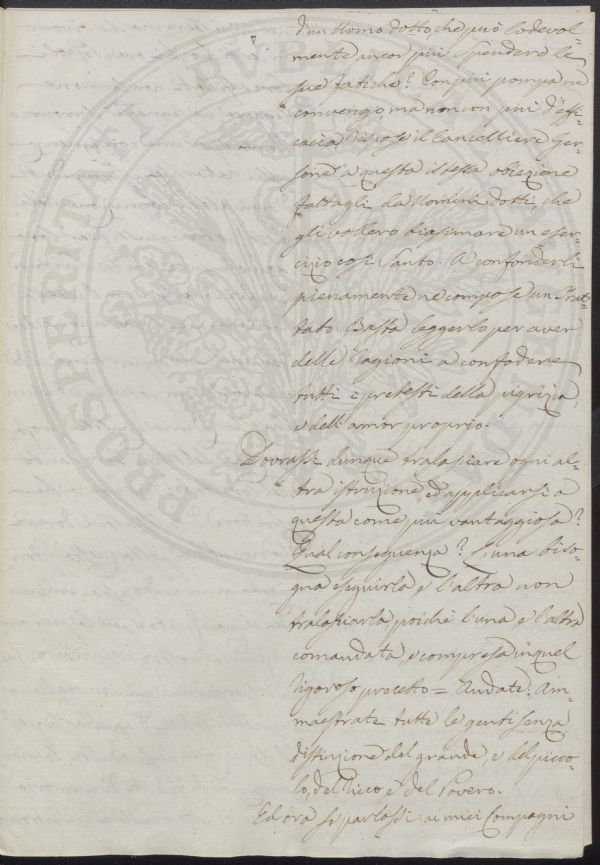 7
d'un Uomo dotto, che può lodevol-
mente ancor più spendere le
sue fatiche? Con più pompa ne
convengo, ma non con più d'effi-
cacia rispose il Cancelliere Ger-
sone a questa istessa obiezione
fattagli da Uomini dotti, che
gli vollero biasimare un eser-
cizio così Santo. A confonderli
pienamente ne compose un Trat-
tato. Basta leggerlo per aver
delle Ragioni a confodere
tutti i pretesti della pigrizia
e dell'amor proprio.
Dovrassi dunque tralasciare ogni al-
tra istruzione ed applicarsi a
questa come più vantaggiosa?
Qual conseguenza? L'una biso-
gna eseguirla e l'altra non
tralasciarla, poiché l'una e l'altra
comandata, e compresa in quel
rigoroso precetto = Andate. Am-
maestrate tutte le genti senza
distinzione del grande, e del picco-
lo, del Ricco e del Povero.
Ed ora se parlassi ai miei Compagni
PROSPERITATI PUBLICAE